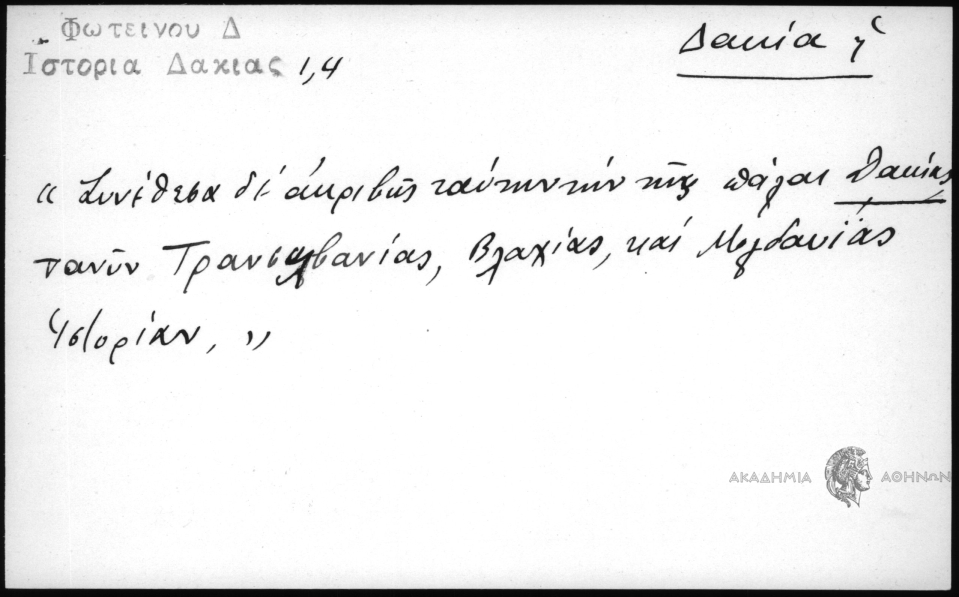 Φωτεινου Δ
Ιστορια Δακιας 1,4
Δακία ἡ
« Συνέθεσα δι' ἀκριβῆς ταύτην τὴν τῆς πάλαι Δακίας
τανῦν Τρανσαλβανίας, Βλαχίας, καὶ Μολδαυΐας
Ἱστορίαν, »
ΑΚΑΔΗΜΙΑ ΑΘΗΝΩΝ